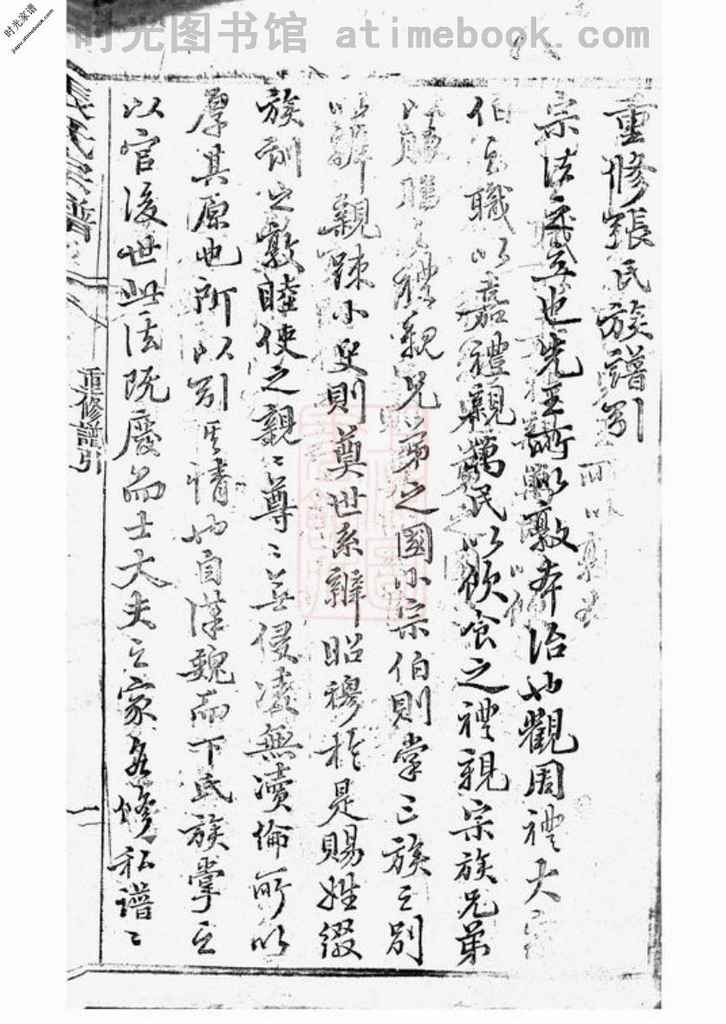 时光图书馆 atimebook.com
时光家谱
jiapu.atimebook.com
重修張氏族譜引
宗法之立也先王所以敦本治也觀周禮大宗
伯之職以嘉禮親萬民以飲食之禮親宗族兄弟
以脤膰之禮親兄弟之國小宗伯則掌三族之別
以辨親疎小史則奠世系辨昭穆於是賜姓綴
族訓之敦睦使之親〻尊〻無侵凌無瀆倫所以
厚其原也所以別其情也自漢魏而下氏族掌之
以官後世此法既廢而士大夫之家各修私譜〻
張氏宗譜
重修譜引
一